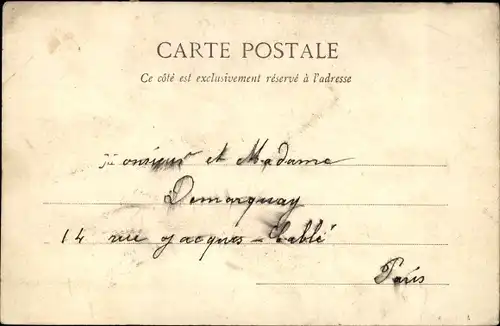 CARTE POSTALE
Ce côté est exclusivement réservé à l'adresse
Monsieur et Madame
Demarquay
14 rue Jacques-Cablé
Paris